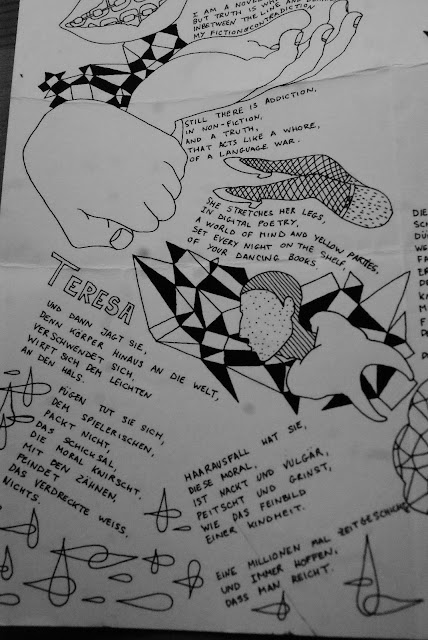 I AM A NOVEL
BUT TRUTH IS WHITE AND
INBETWEEN THE LINE AND
MY FICTION CONTRADICTION
STILL THERE IS ADDICTION,
IN NON-FICTION,
AND A TRUTH,
THAT ACTS LIKE A WHORE,
OF A LANGUAGE WAR.
SHE STRETCHES HER LEGS,
IN DIGITAL POETRY,
A WORLD OF MIND AND YELLOW PARTIES,
SET EVERY NIGHT ON THE SHELF,
OF YOUR DANCING BOOKS.
TERESA
UND DANN JAGT SIE,
DENN KÖRPER HINAUS AN DIE WELT,
VERSCHWENDET SICH,
WIRFT SICH DEM LEICHTEN
AN DEN HALS.
FÜGEN TUT SIE SICH,
DEM SPIELERISCHEN,
PACKT NICHT,
DAS SCHICKSAL,
DIE MORAL KNIRSCHT,
MIT DEN ZÄHNEN,
FEINDET
DAS VERDRECKTE WEISS,
NICHTS.
HAARAUSFALL HAT SIE,
DIESE MORAL,
IST NACKT UND VULGÄR,
PEITSCHT UND GRINST,
WIE DAS FEINBILD
EINER KINDHEIT.
EINE MILLIONEN MAL ZEITGESCHICHTE
UND IMMER HOFFEN,
DASS MAN REICHT.